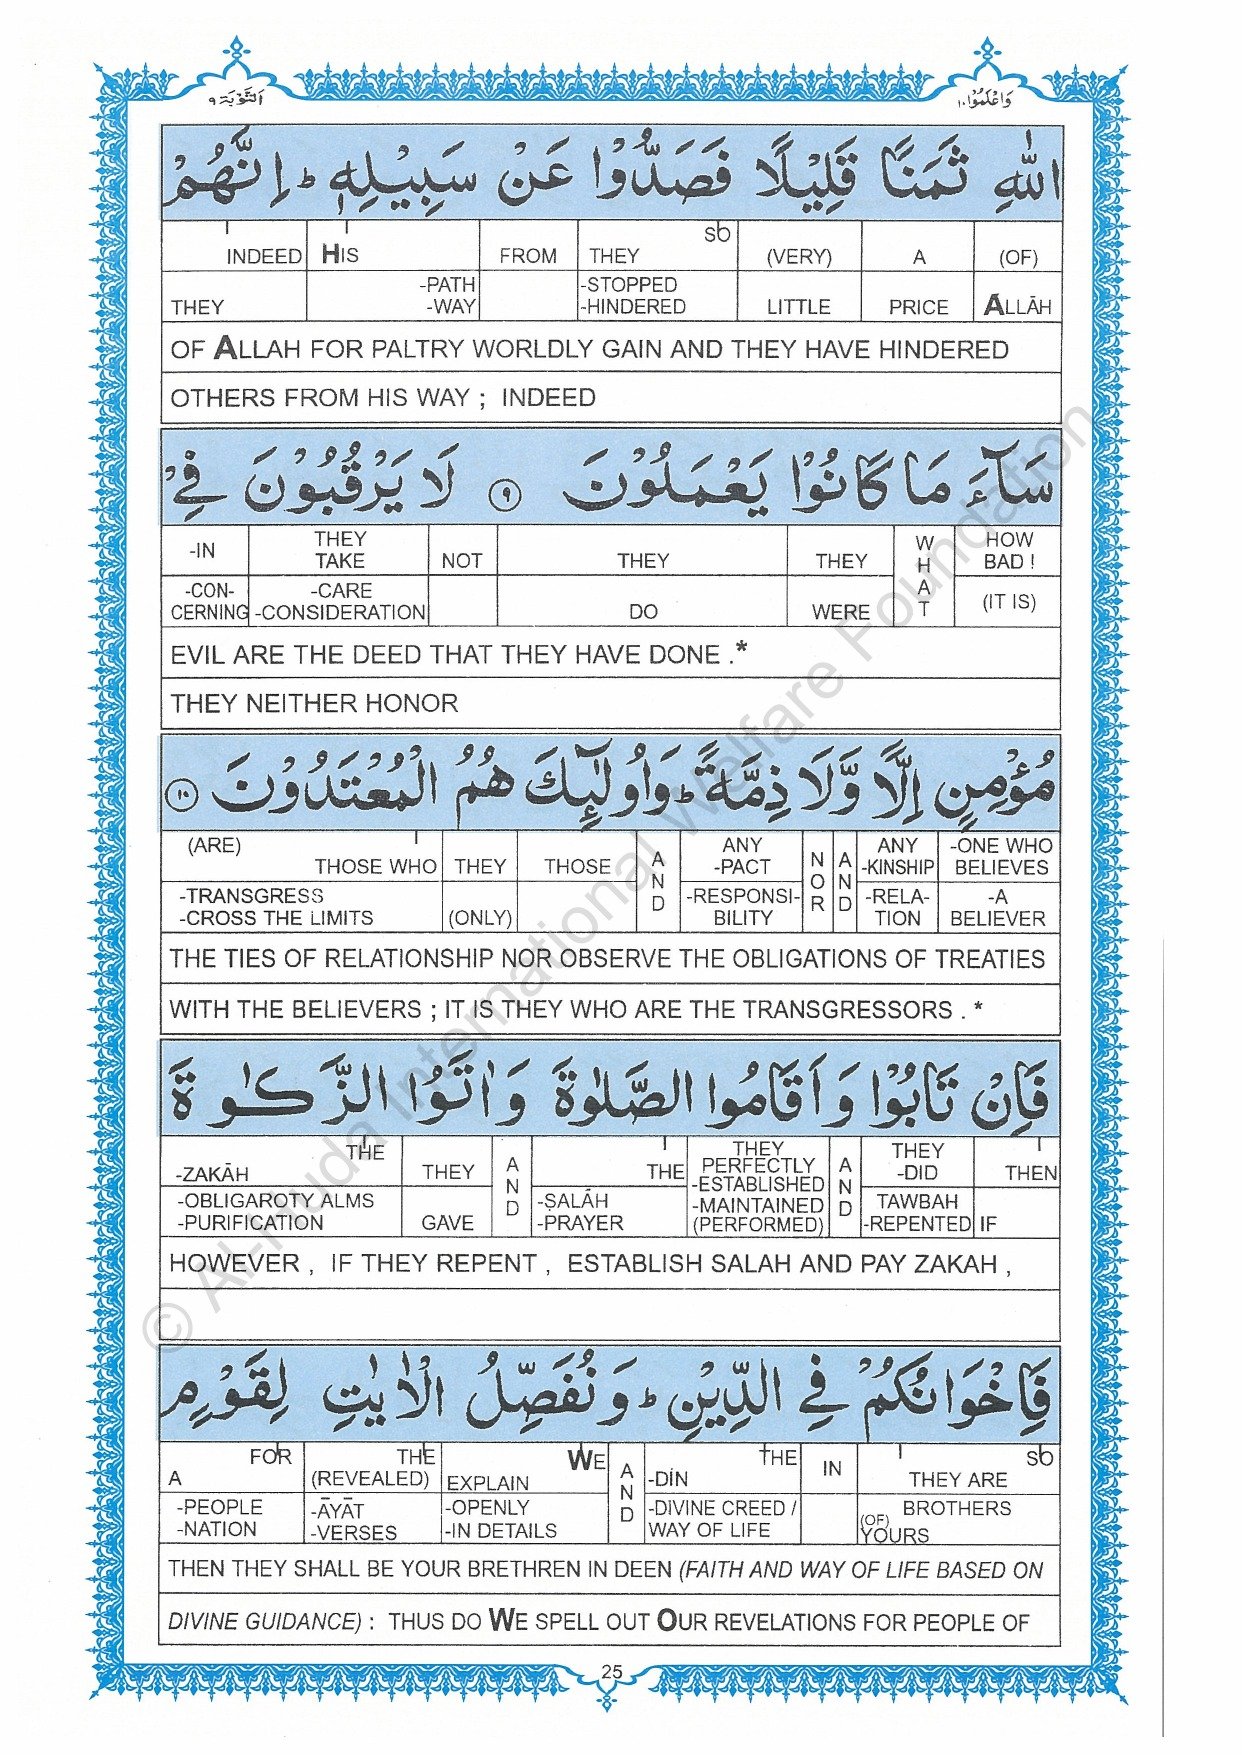 اَلتَّوْبَة ٩
وَاعْلَمُوْا ١٠
اللّٰهِ ثَمَنًا قَلِيْلًا فَصَدُّوْا عَنْ سَبِيْلِهٖ ؕ اِنَّهُمْ
INDEED HIS FROM THEY so (VERY) A (OF)
THEY -PATH -WAY -STOPPED -HINDERED LITTLE PRICE ALLĀH
OF ALLAH FOR PALTRY WORLDLY GAIN AND THEY HAVE HINDERED
OTHERS FROM HIS WAY ; INDEED
سَآءَ مَا كَانُوْا يَعْمَلُوْنَ ۹ لَا يَرْقُبُوْنَ فِيْ
-IN THEY TAKE NOT THEY THEY WHAT HOW BAD !
-CON-CERNING -CARE -CONSIDERATION DO WERE (IT IS)
EVIL ARE THE DEED THAT THEY HAVE DONE .*
THEY NEITHER HONOR
مُؤْمِنٍ اِلًّا وَّلَا ذِمَّةً ؕ وَاُولٰٓئِكَ هُمُ الْمُعْتَدُوْنَ ۱۰
(ARE) THOSE WHO THEY THOSE AND ANY -PACT NOR AND ANY -KINSHIP -ONE WHO BELIEVES
-TRANSGRESS -CROSS THE LIMITS (ONLY) -RESPONSI-BILITY -RELA-TION -A BELIEVER
THE TIES OF RELATIONSHIP NOR OBSERVE THE OBLIGATIONS OF TREATIES
WITH THE BELIEVERS ; IT IS THEY WHO ARE THE TRANSGRESSORS . *
فَاِنْ تَابُوْا وَاَقَامُوا الصَّلٰوةَ وَاٰتَوُا الزَّكٰوةَ
THE -ZAKĀH THEY AND THE THEY PERFECTLY -ESTABLISHED AND THEY -DID THEN
-OBLIGAROTY ALMS -PURIFICATION GAVE -ṢALĀH -PRAYER -MAINTAINED (PERFORMED) TAWBAH -REPENTED IF
HOWEVER , IF THEY REPENT , ESTABLISH SALAH AND PAY ZAKAH ,
فَاِخْوَانُكُمْ فِي الدِّيْنِ ؕ وَنُفَصِّلُ الْاٰيٰتِ لِقَوْمٍ
FOR A THE (REVEALED) WE EXPLAIN AND THE -DĪN IN so THEY ARE
-PEOPLE -NATION -ĀYĀT -VERSES -OPENLY -IN DETAILS -DIVINE CREED / WAY OF LIFE BROTHERS (OF) YOURS
THEN THEY SHALL BE YOUR BRETHREN IN DEEN (FAITH AND WAY OF LIFE BASED ON
DIVINE GUIDANCE) : THUS DO WE SPELL OUT OUR REVELATIONS FOR PEOPLE OF
25
© Al-Huda International Welfare Foundation